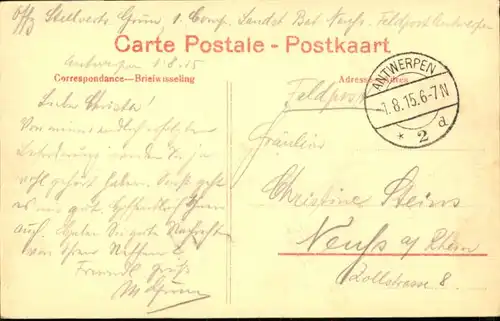 Offz Stellvertr. Grün, 1. Comp. Landst. Bat Neuss. Feldpost Antwerpen
Carte Postale - Postkaart
Antwerpen 1.8.15
Correspondance—Briefwisseling
ANTWERPEN
1.8.15.6-7N
* 2 d
Feldpost
Liebe Christa!
Von meiner endlich erfolgten
Beförderung werden Sie ja
wohl gehört haben. Sonst geht
es mir gut. Hoffentlich Ihnen
auch. Haben Sie gute Nachrichten
von Ihrem Neffen?
Freundl. Grüße
M Grün
Fräulein
Christine Steins
Neuss a/Rhein
Zollstrasse 8.